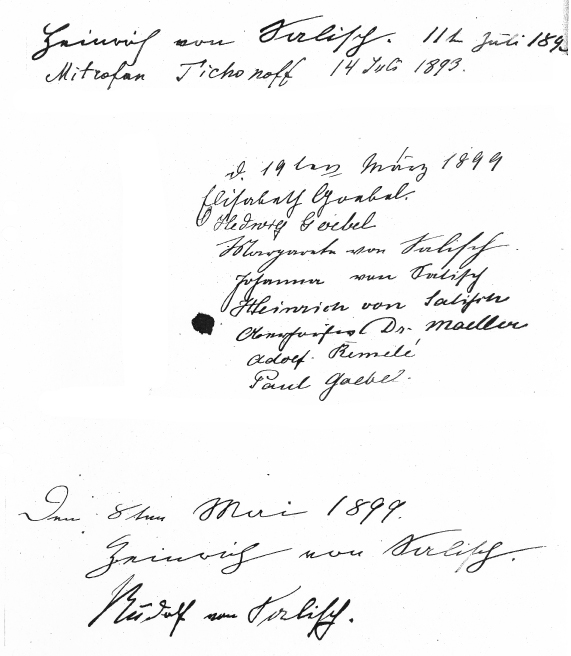 Heinrich von Salisch. 11t Juli 189
Mitrofan Tichonoff 14 Juli 1893.
d. 19ten März 1899
Elisabeth Goebel.
Hedwig Goebel
Margarete von Salisch.
Johanna von Salisch
Heinrich von Salisch
Dr. Moeller
Adolf Remelé
Paul Goebel.
Den 8ten Mai 1899.
Heinrich von Salisch.
Rudolf von Salisch.